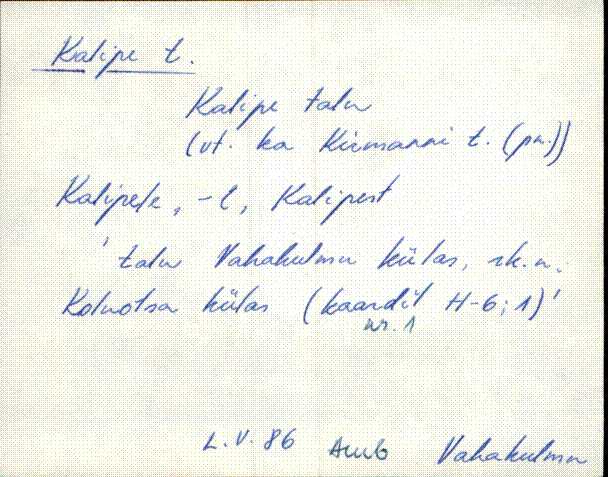 Kalipe t.
Kalipe talu
(vt. ka Kirmanni t. (pn.))
Kalipele, -l, Kalipest
'talu Vahakulmu külas, rk.n.
Kolnotsa külas (kaardil H-6; 1)'
nr. 1
L.V. 86 Amb Vahakulmu